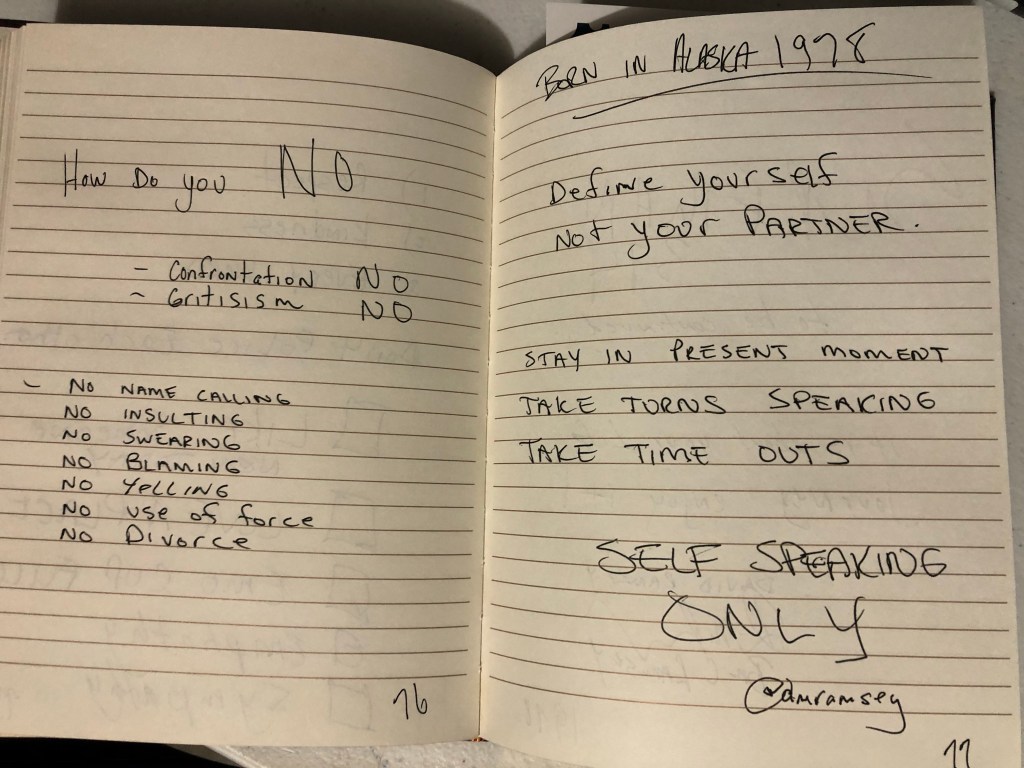 How Do you NO
- Confrontation NO
~ Critisism NO
- No NAME CALLING
No INSULTING
No SWEARING
NO BLAMING
NO YELLING
NO use of force
NO Divorce
76
BORN IN ALASKA 1978
Define yourself
Not your PARTNER.
STAY IN PRESENT MOMENT
TAKE TURNS SPEAKING
TAKE TIME OUTS
SELF SPEAKING
ONLY
@dmramsey
77